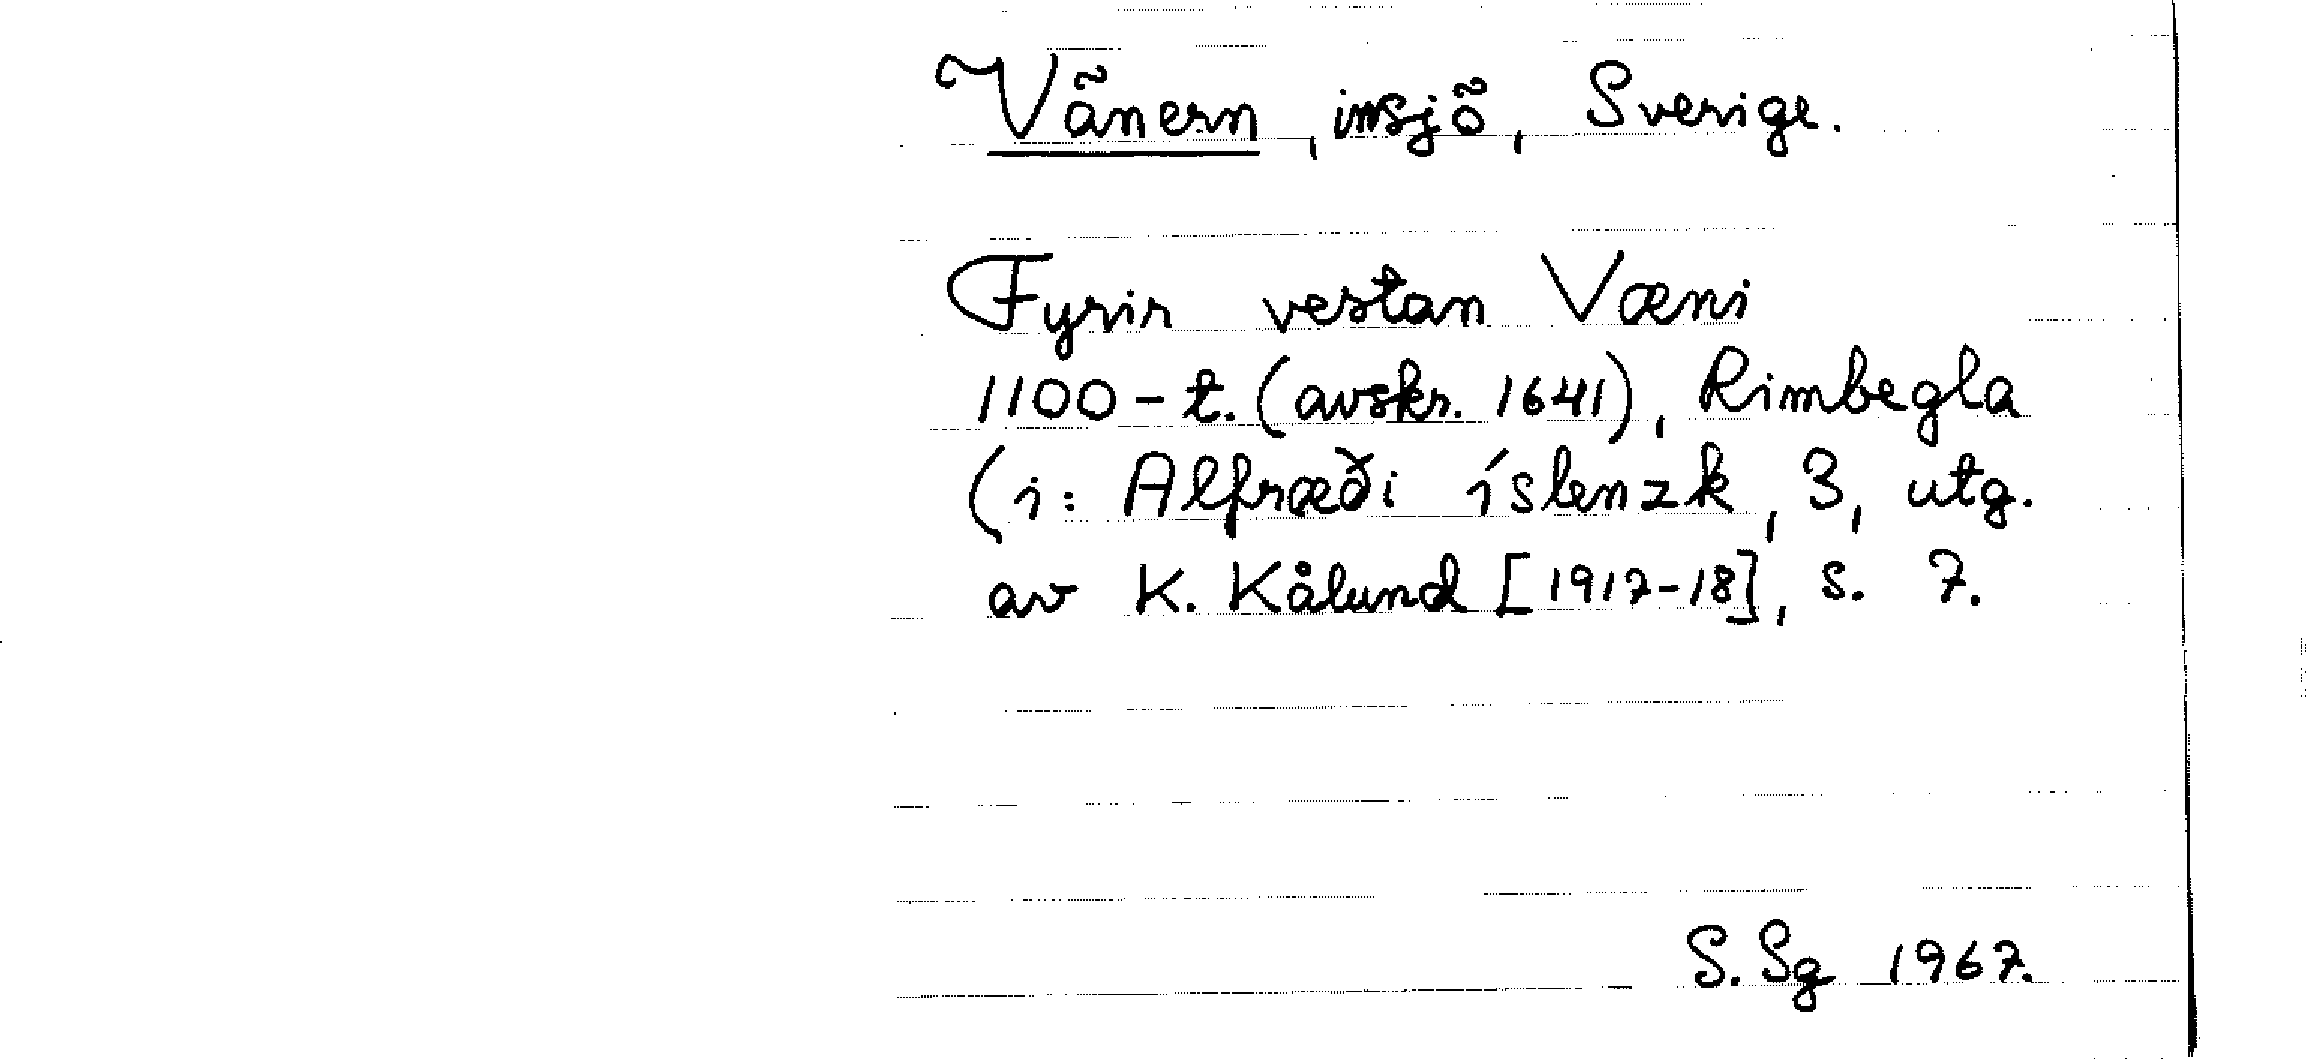 Vänern, insjö, Sverige.
Fyrir vestan Væni
1100-t. (avskr. 1641), Rimbegla
(i: Alfræði íslenzk, 3, utg.
av K. Kålund [1917-18], s. 7.
S. Sg 1967.